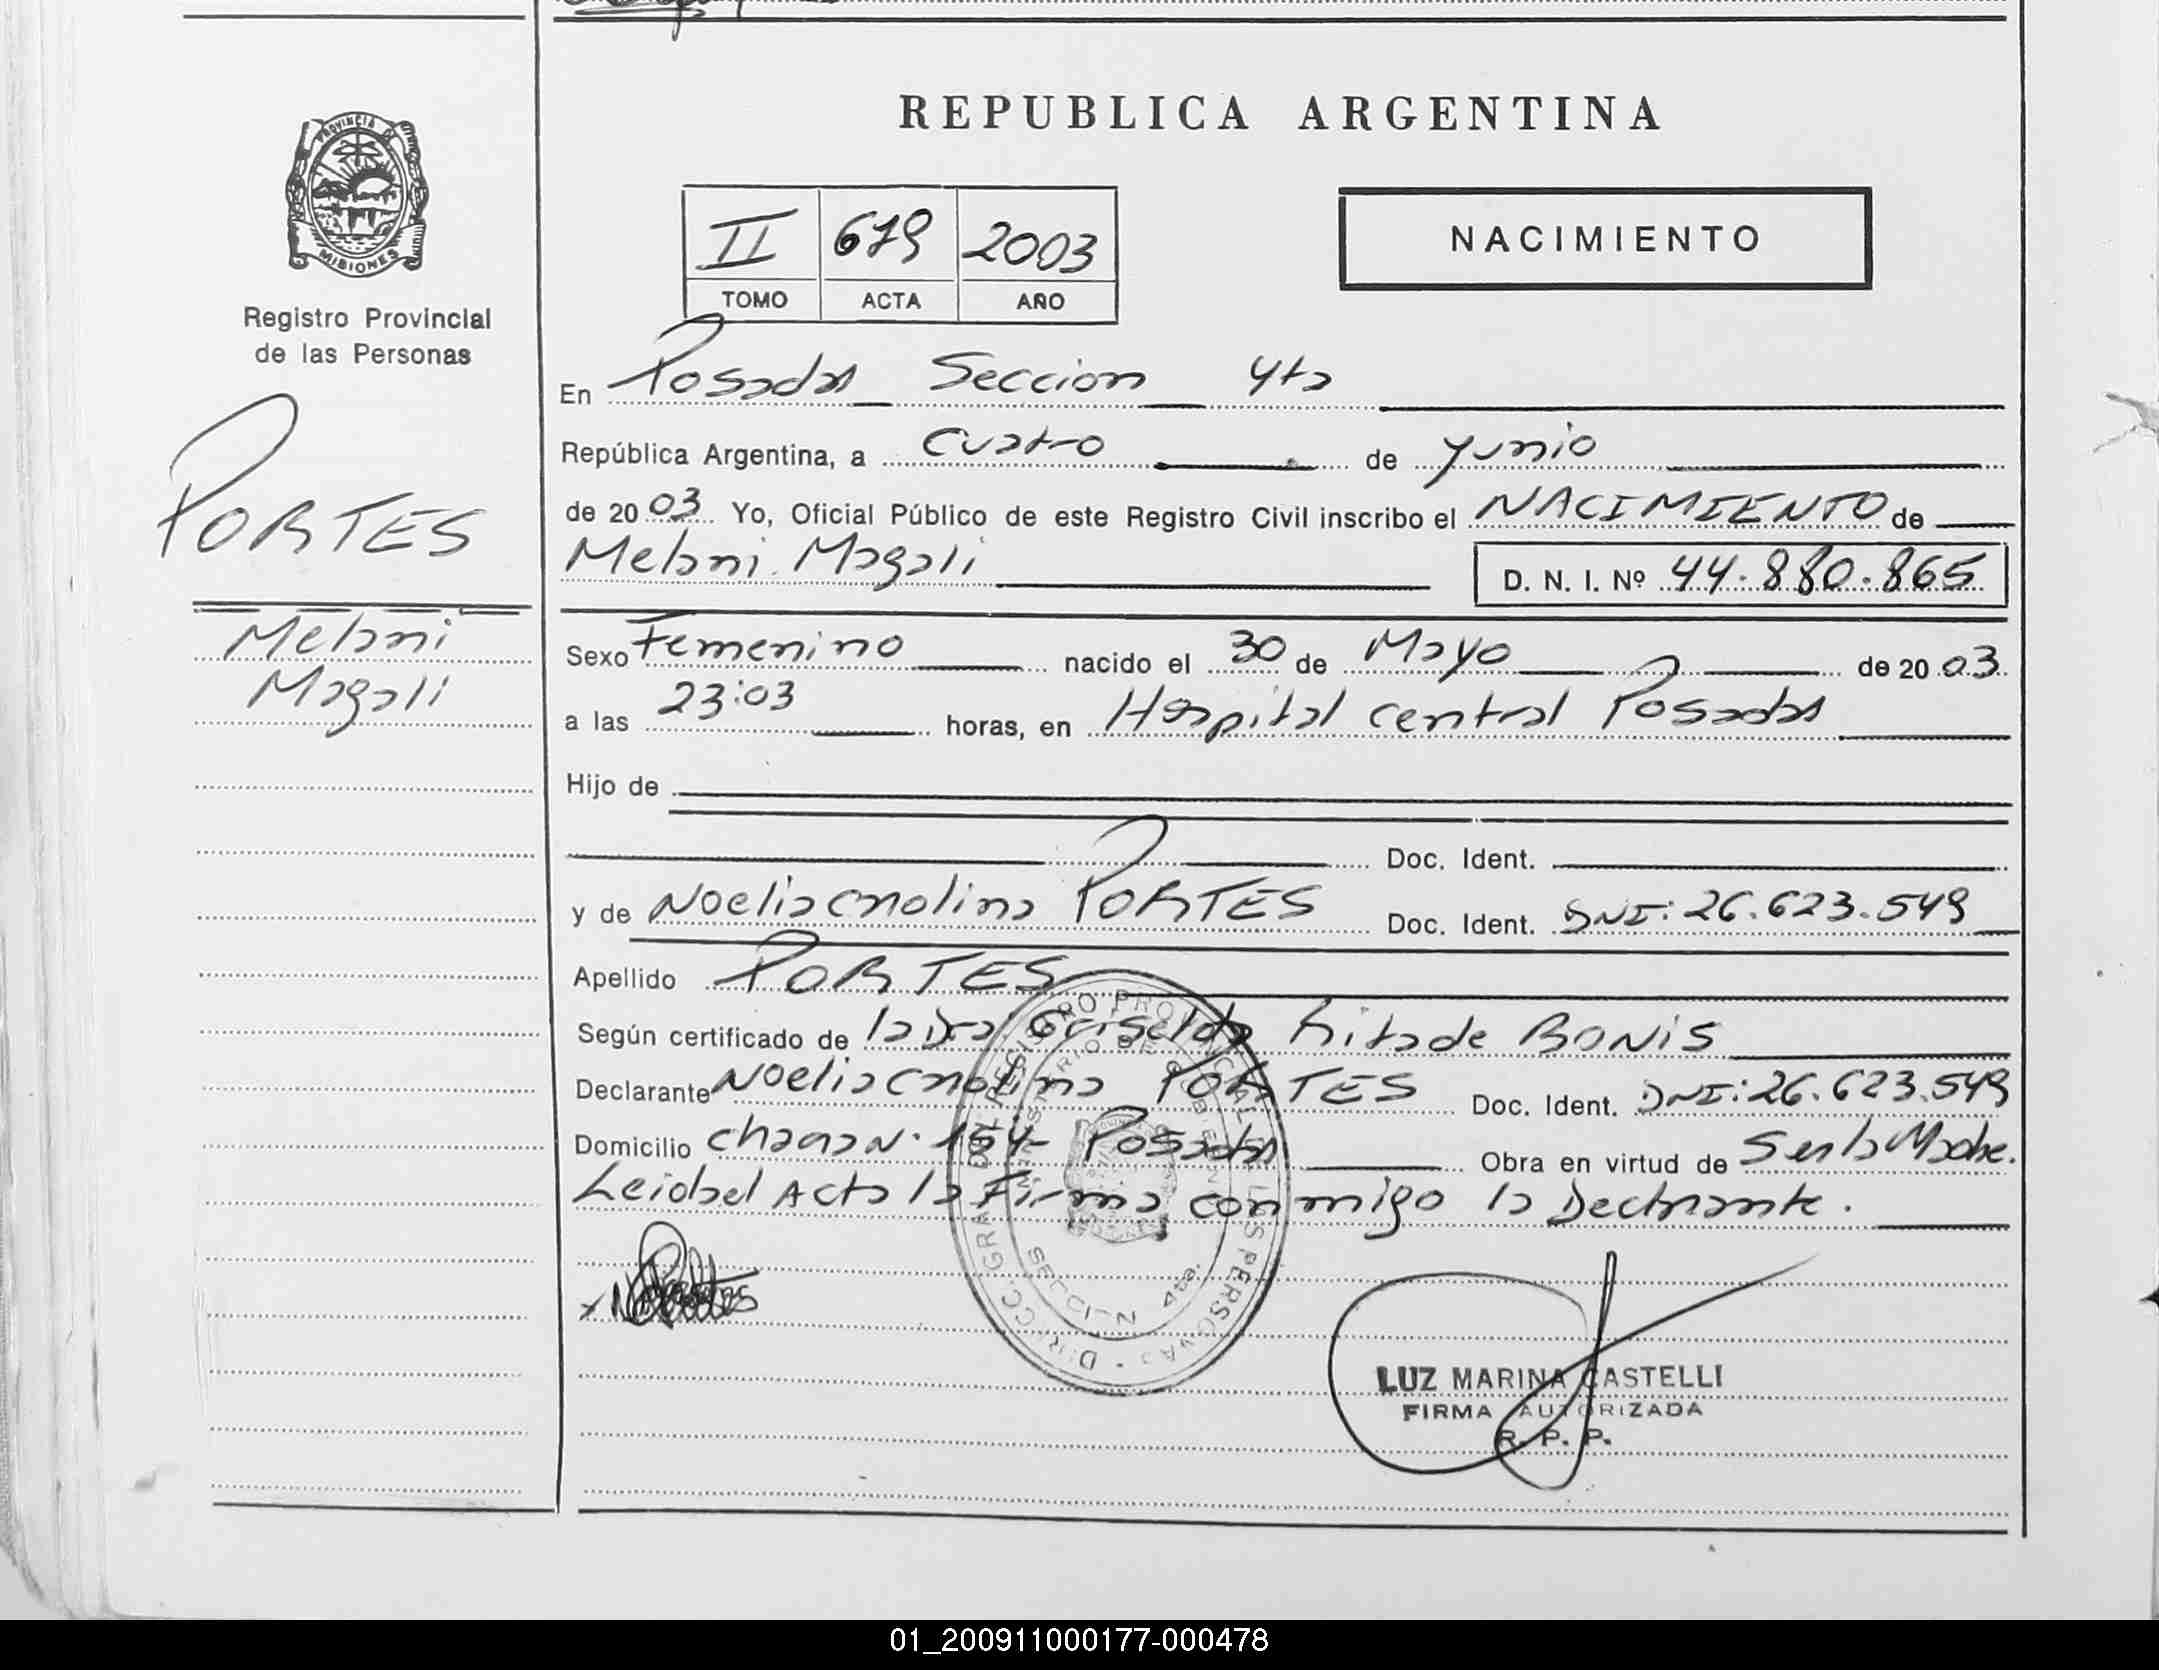 REPUBLICA ARGENTINA
PROVINCIA DE MISIONES
Registro Provincial
de las Personas
II 679 2003
TOMO ACTA AÑO
NACIMIENTO
En Posadas Seccion 4ta
República Argentina, a cuatro de Junio
de 2003 Yo, Oficial Público de este Registro Civil inscribo el NACIMIENTO de
Melani Magali D. N. I. Nº 44.880.865
PORTES
Melani
Magali
Sexo Femenino nacido el 30 de Mayo de 2003
a las 23:03 horas, en Hospital central Posadas
Hijo de
Doc. Ident.
y de Noelia Carolina PORTES Doc. Ident. DNI: 26.623.549
Apellido PORTES
Según certificado de la Dra Griselda Rita de BONIS
Declarante Noelia Carolina PORTES Doc. Ident. DNI: 26.623.549
Domicilio Chacra N. 154 - Posadas Obra en virtud de Ser la Madre.
Leida el Acta la Firma conmigo la Declarante.
DIRECC. GRAL. DEL REGISTRO PROVINCIAL DE LAS PERSONAS
MINISTERIO DE GOBIERNO
SECCION 4ta.
LUZ MARINA CASTELLI
FIRMA AUTORIZADA
R. P. P.
01_200911000177-000478